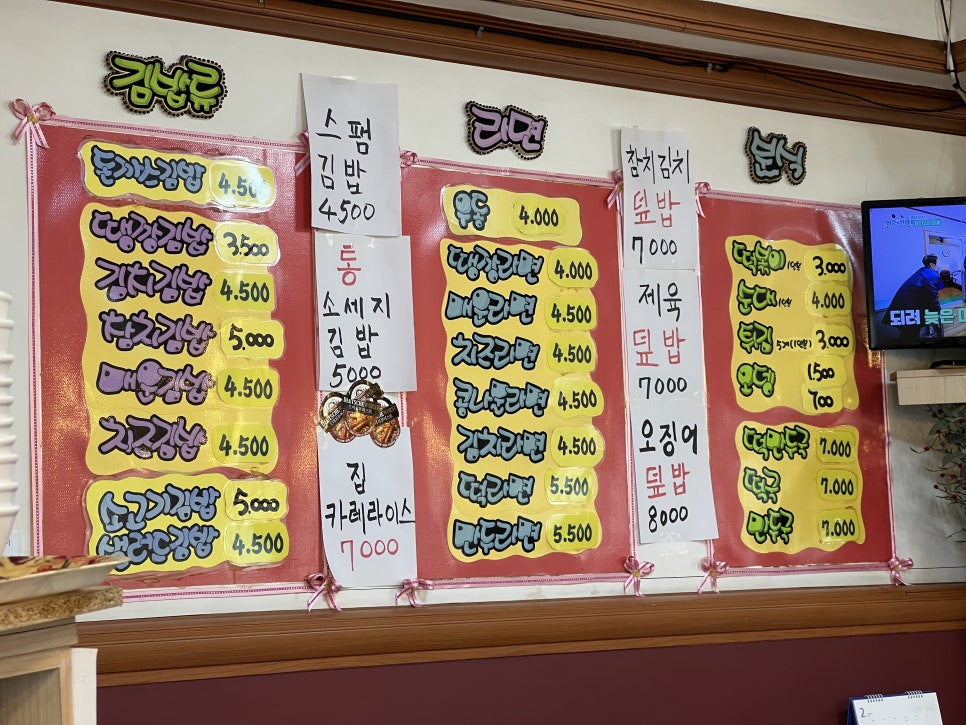 김밥류
돈까스김밥 4.500
땡깡김밥 3,500
김치김밥 4.500
참치김밥 5,000
매운김밥 4.500
치즈김밥 4.500
소고기김밥 5,000
샐러드김밥 4.500
스팸
김밥
4500
통
소세지
김밥
5000
집
카레라이스
7000
라면
우동 4.000
땡깡라면 4.000
매운라면 4.500
치즈라면 4.500
콩나물라면 4.500
김치라면 4.500
떡라면 5.500
만두라면 5.500
참치김치
덮밥
7000
제육
덮밥
7000
오징어
덮밥
8000
분식
떡볶이 1인분 3,000
순대 1인분 4.000
튀김 5개(1인분) 3,000
오뎅 1500
700
떡만두국 7.000
떡국 7.000
만두국 7.000
되려 늦은
2